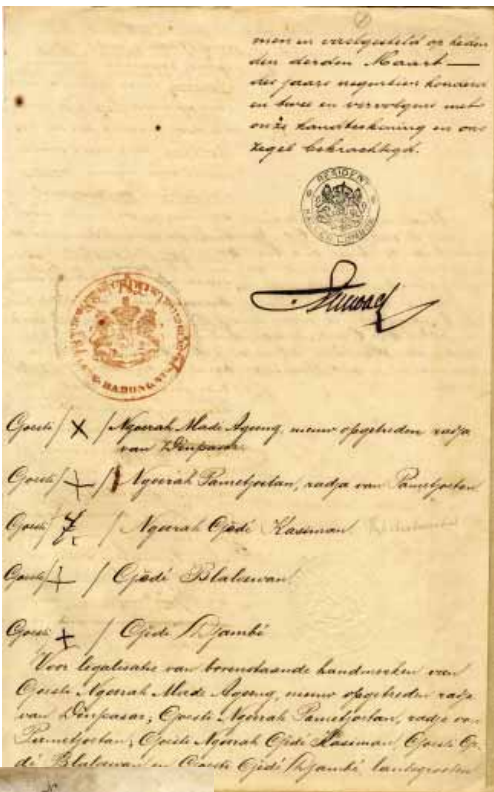 men en vastgesteld op heden
den derden Maart —
des jaars negentien honderd
en twee en vervolgens met
onze handteekening en ons
zegel bekrachtigd.
RESIDENT
BALI EN LOMBOK
BADONG
Goesti / X / Ngoerah Made Agoeng, nieuw opgetreden radja
van Dènpasar.
Goesti / + / Ngoerah Pametjoetan, radja van Pametjoetan
Goesti / Ngoerah Gjedé Kassiman
Goesti / + / Gjedé Blaloewan
Goesti + / Gjedé Djambé
Voor legalisatie van bovenstaande handmerken van
Goesti Ngoerah Made Agoeng, nieuw opgetreden radja
van Dènpasar, Goesti Ngoerah Pametjoetan, radja van
Pametjoetan, Goesti Ngoerah Gjedé Kassiman, Goesti Gje-
dé Blaloewan en Goesti Gjedé Djambé, landsgrooten